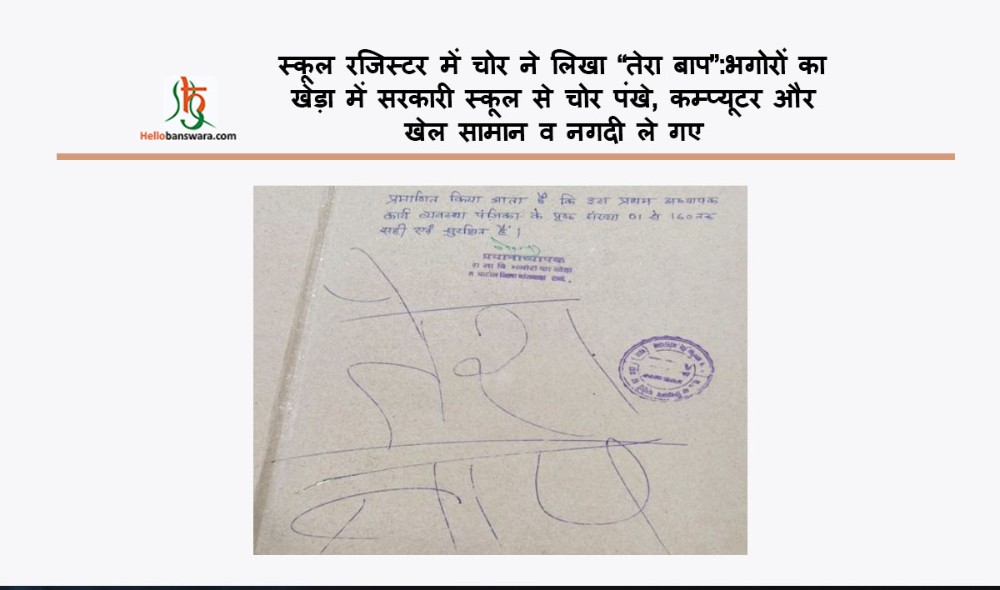 स्कूल रजिस्टर में चोर ने लिखा “तेरा बाप”:भगोरों का
खेड़ा में सरकारी स्कूल से चोर पंखे, कम्प्यूटर और
खेल सामान व नगदी ले गए
Hellobanswara.com
प्रमाणित किया जाता है कि इस प्रथम अध्यापक
कार्य व्यवस्था पंजिका के पृष्ठ संख्या 01 से 160 तक
सही एवं सुरक्षित है।
प्रधानाध्यापक
तेरा
बाप